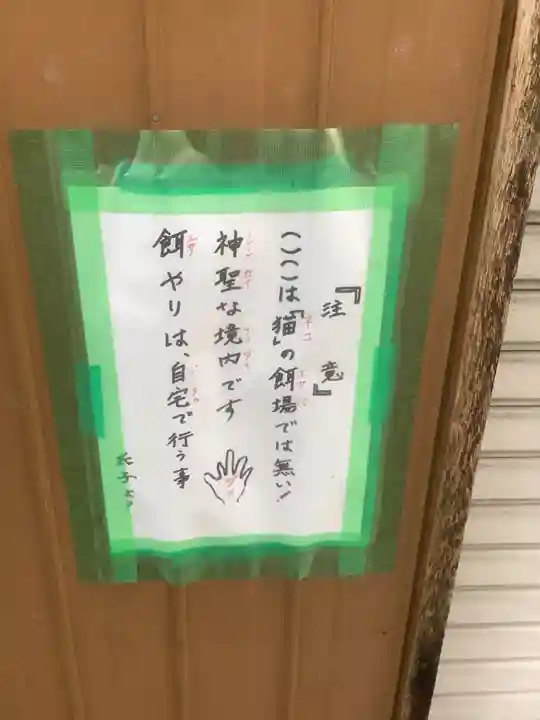 『注意』
ここは「猫」の餌場では無い!
神聖な境内です
餌やりは、自宅で行う事
氏子より